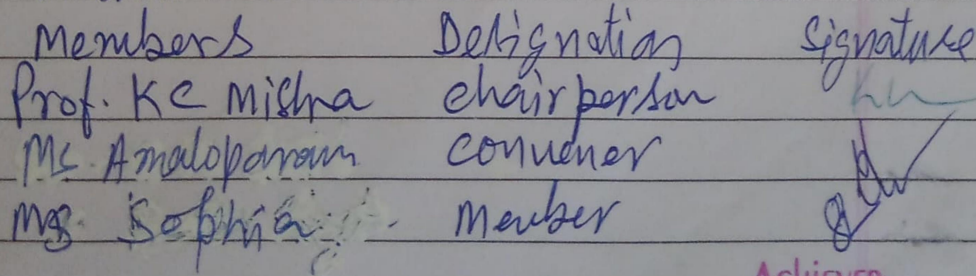 Members Designation Signature
Prof. KC Mishra Chairperson
Ms. Amaloparam Convener
Ms Sophia Member